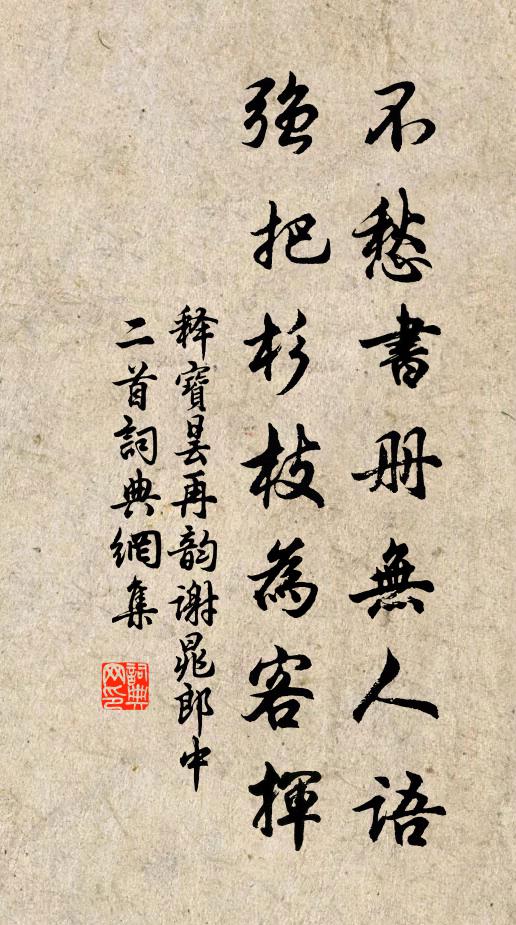 不愁書册無人語
強把杉枝為客揮
释寶曇再韵謝晁郎中
二首詞典網集
詞典网印